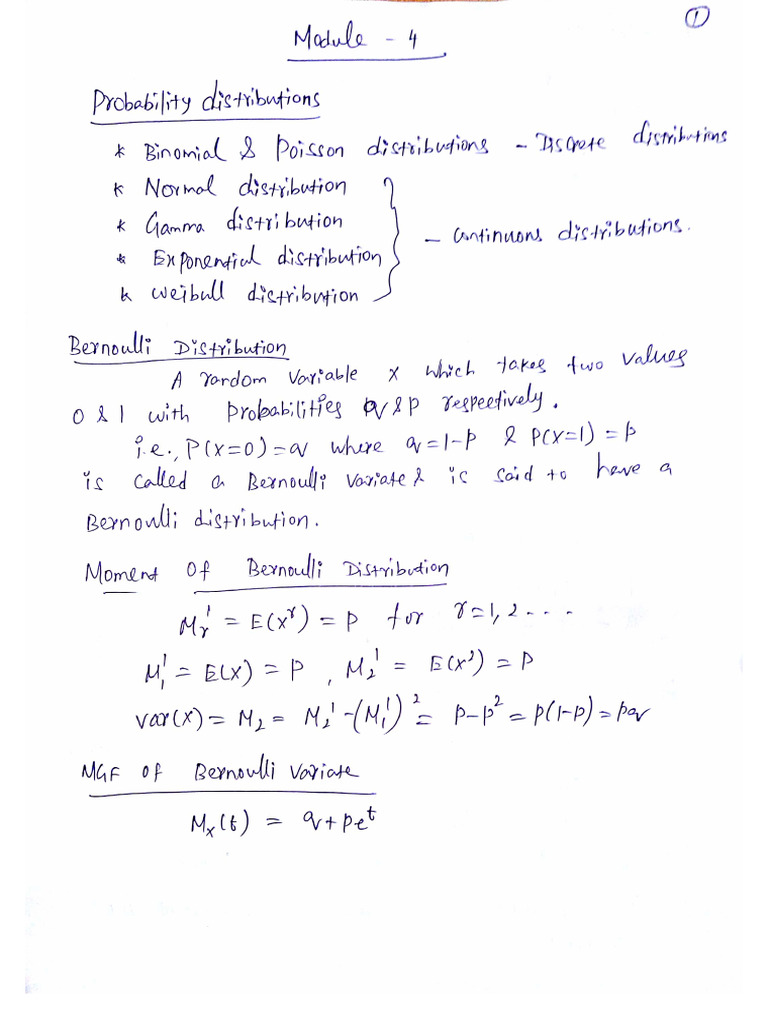 ①
Module - 4
Probability distributions
* Binomial & Poisson distributions - Discrete distributions
* Normal distribution
* Gamma distribution
- Continuous distributions.
* Exponential distribution
* Weibull distribution
Bernoulli Distribution
A random variable X which takes two values
0 & 1 with probabilities q & p respectively.
i.e., P(X=0) = q where q = 1-p & P(X=1) = p
is called a Bernoulli variate & is said to have a
Bernoulli distribution.
Moment of Bernoulli Distribution
Mᵣ' = E(Xʳ) = p for r = 1, 2 ....
M₁' = E(X) = p, M₂' = E(X²) = p
var(X) = M₂ = M₂' - (M₁')² = p - p² = p(1-p) = pq
MGF of Bernoulli Variate
Mₓ(t) = q + peᵗ